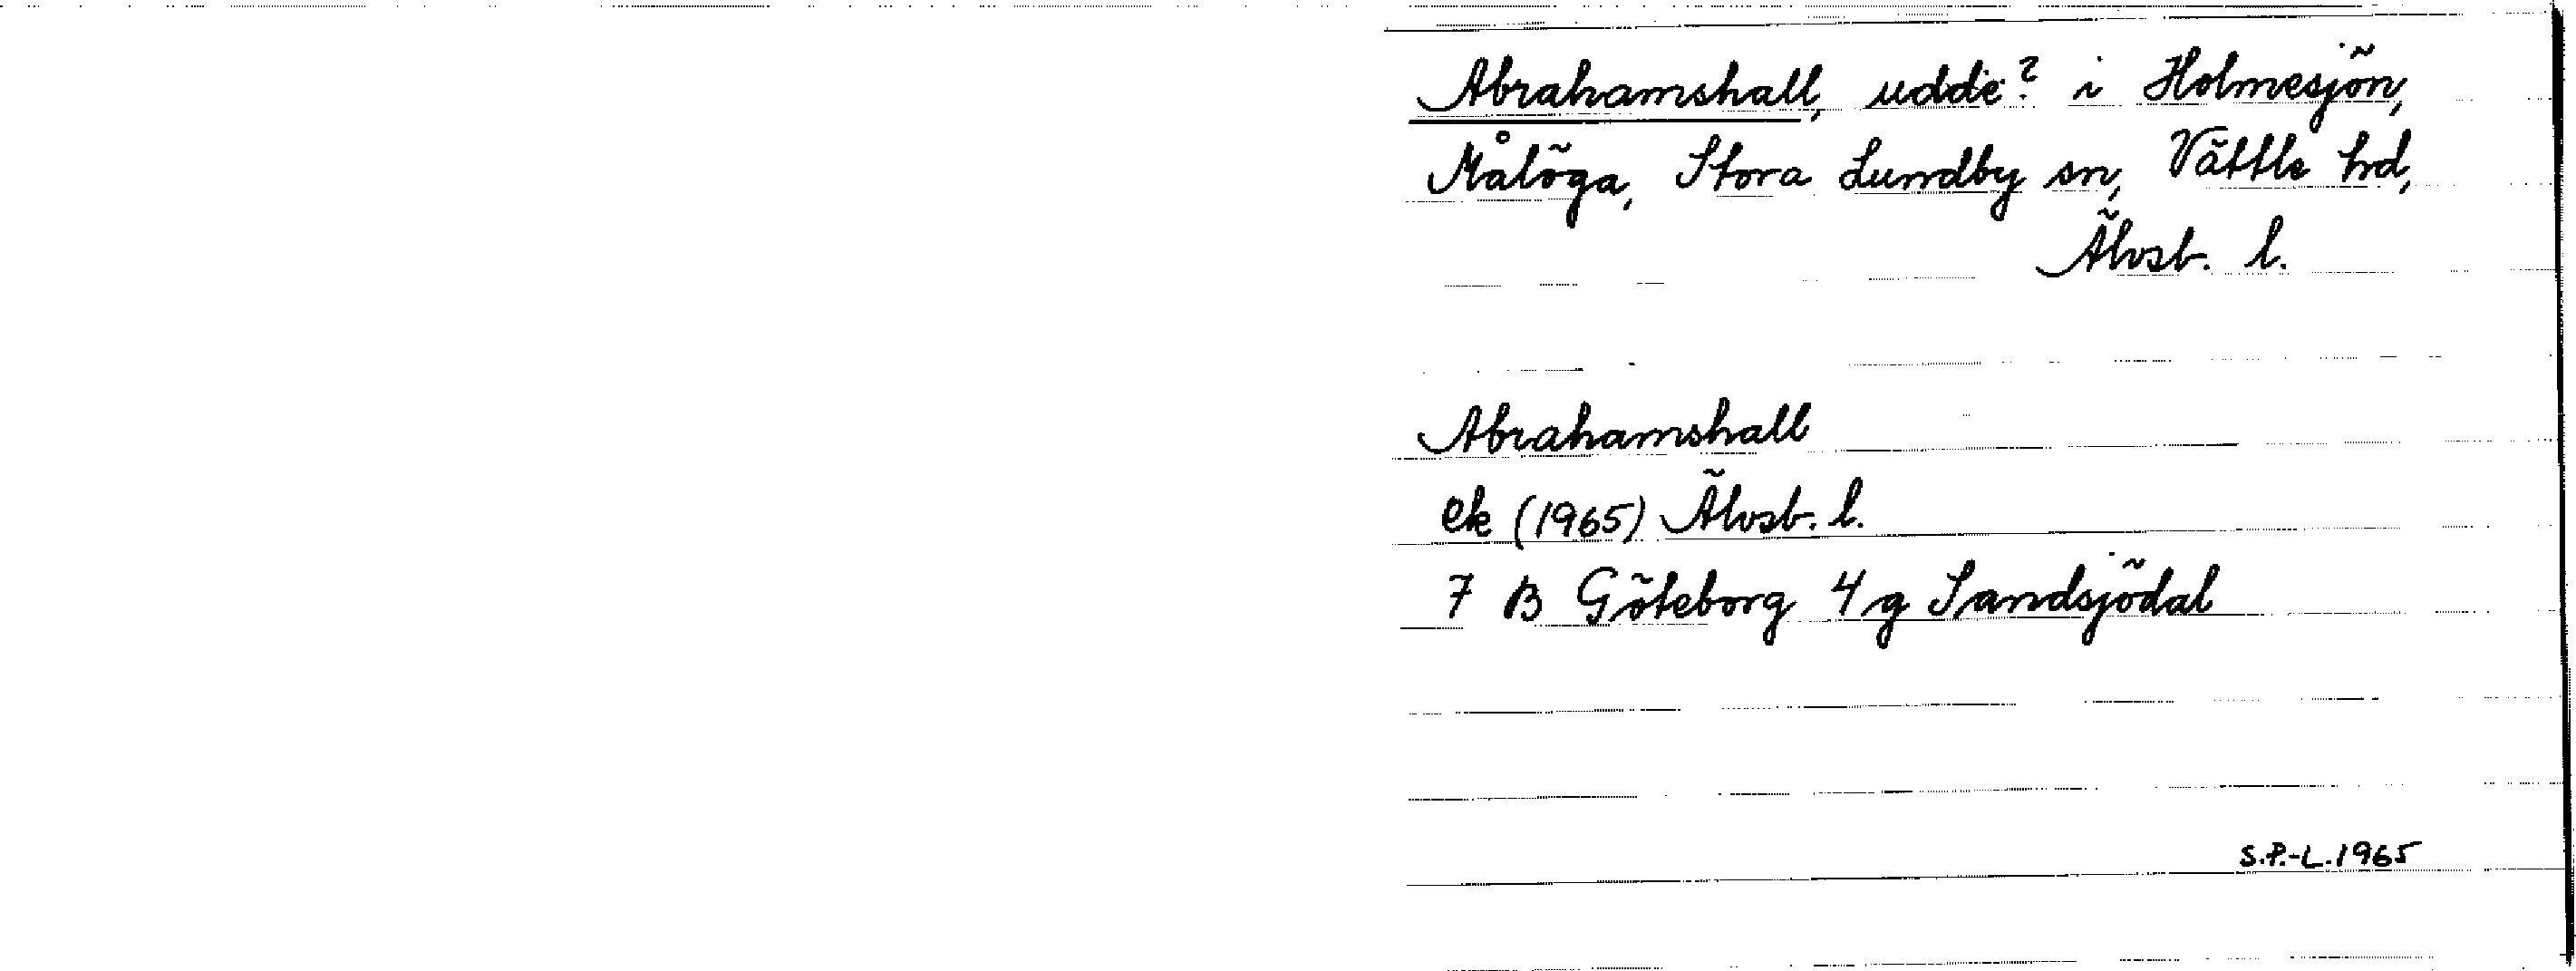 Abrahamshall, udde? i Holmesjön,
Målöga, Stora Lundby sn, Vättle hd,
Älvsb. l.
Abrahamshall
ek (1965) Älvsb. l.
7 B Göteborg 4 g Sandsjödal
S.P.-L.1965